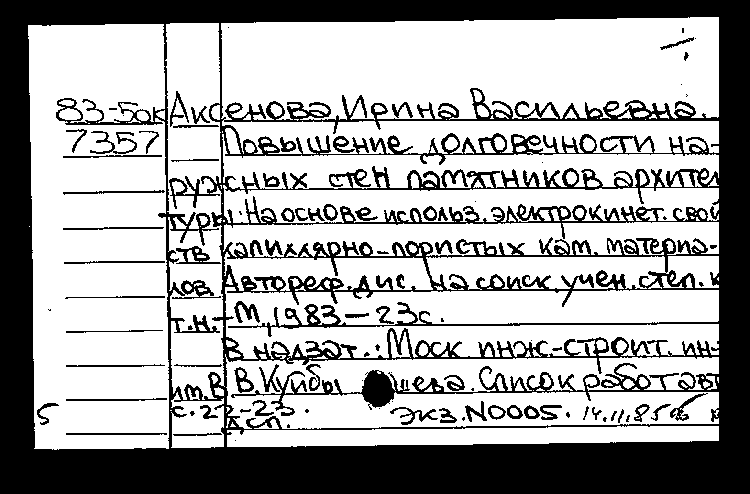 83-5ок Аксенова, Ирина Васильевна.
7357 Повышение долговечности на-
ружных стен памятников архитек
туры. На основе использ. электрокинет. свой
ств капиллярно-пористых кам. материа-
лов. Автореф. дис. на соиск. учен. степ. к
т.н. - М., 1983. - 23с.
В надзаг.: Моск инж.-строит. ин-
им. В.В. Куйбышева. Список работ авт
5 с. 22-23.
Дсп. экз. N0005. 14.11.85